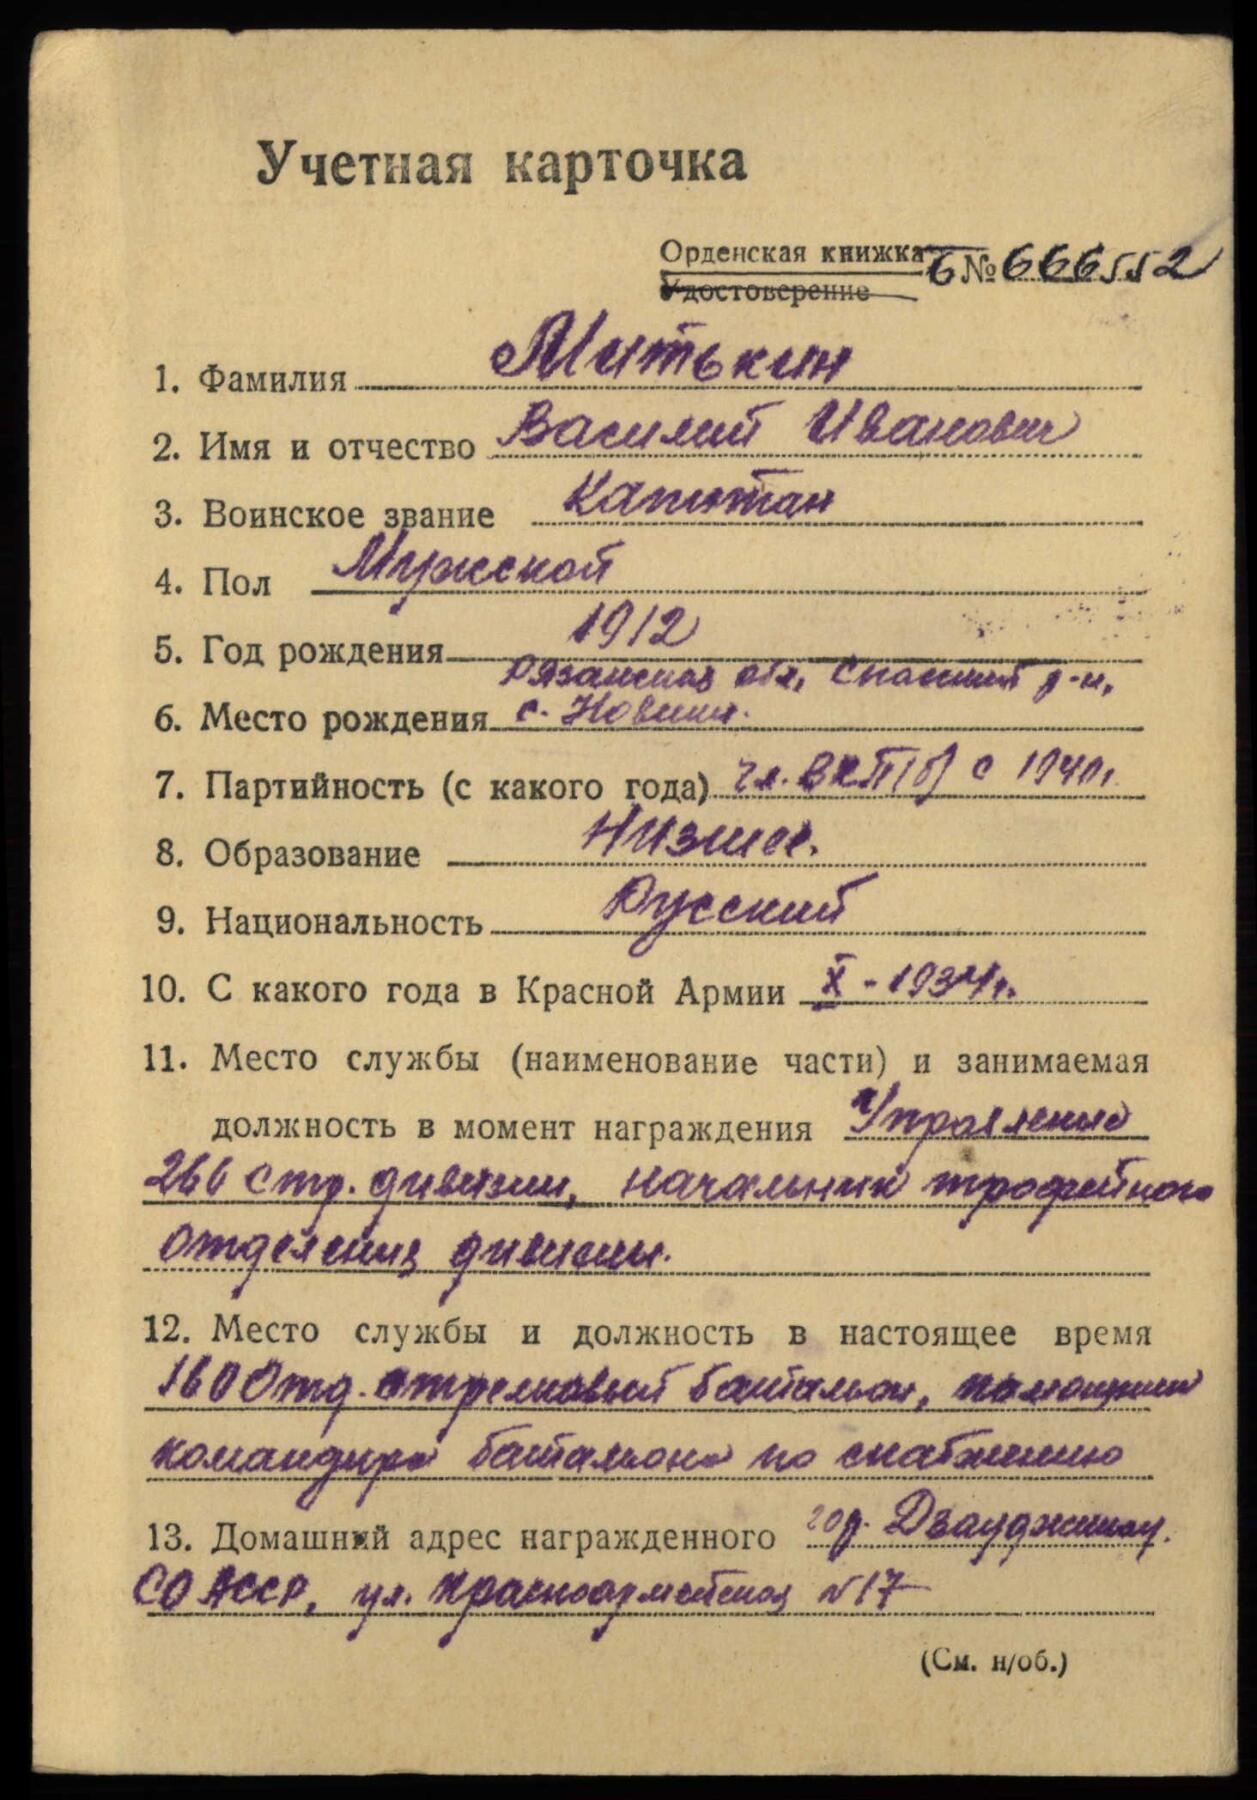 Учетная карточка
Орденская книжка Б № 666552
Удостоверение
1. Фамилия Митькин
2. Имя и отчество Василий Иванович
3. Воинское звание Капитан
4. Пол Мужской
5. Год рождения 1912
Рязанская обл, Спасский р-н,
6. Место рождения с. Новики.
7. Партийность (с какого года) чл. ВКП(б) с 1940г.
8. Образование Низшее.
9. Национальность Русский
10. С какого года в Красной Армии X - 1934г.
11. Место службы (наименование части) и занимаемая
должность в момент награждения Управление
266 стр. дивизии, начальник трофейного
отделения дивизии.
12. Место службы и должность в настоящее время
160 Отд. стрелковый батальон, помощник
командира батальона по снабжению
13. Домашний адрес награжденного гор. Дзауджикау.
СО АССР, ул. Красноармейская N 17
(См. н/об.)